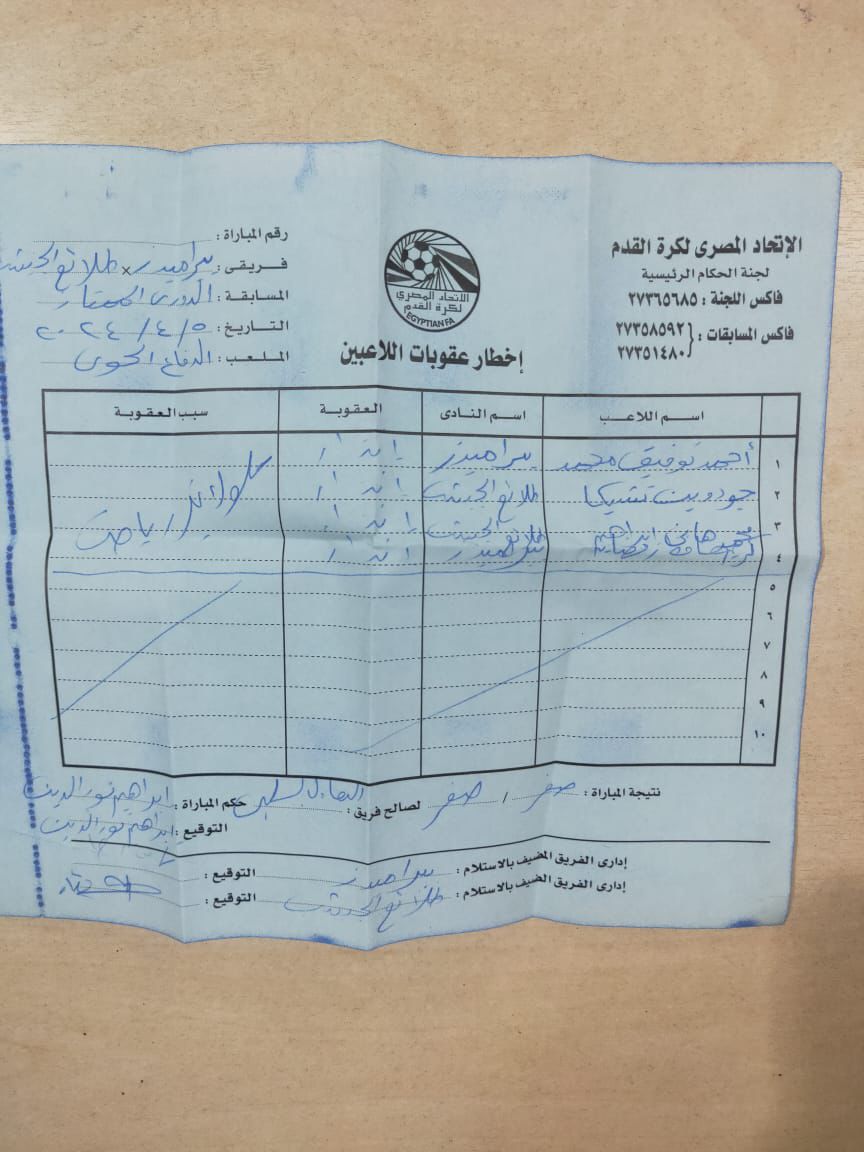 الإتحاد المصرى لكرة القدم
لجنة الحكام الرئيسية
فاكس اللجنة : ٢٧٣٦٥٦٨٥
فاكس المسابقات : {٢٧٣٥٨٥٩٢
٢٧٣٥١٤٨٠
الاتحاد المصري
لكرة القدم
EGYPTIAN FA
إخطار عقوبات اللاعبين
رقم المباراة :
فريقى : بيراميدز × طلائع الجيش
المسابقة : الدورى الممتاز
التاريخ : ٢٠٢٤/٤/٥
الملعب : الدفاع الجوى
اسم اللاعب اسم النادى العقوبة سبب العقوبة
١ أحمد توفيق محمد بيراميدز إنذار سلوك غير رياضى
٢ جودوين تشيكا طلائع الجيش إنذار
٣ الجيش إنذار
٤ إنذار
٥
٦
٧
٨
٩
١٠
نتيجة المباراة : صفر / صفر لصالح فريق : التعادل السلبى
حكم المباراة : ابراهيم نور الدين
التوقيع : ابراهيم نور الدين
إدارى الفريق المضيف بالاستلام : بيراميدز التوقيع :
إدارى الفريق الضيف بالاستلام : طلائع الجيش التوقيع :